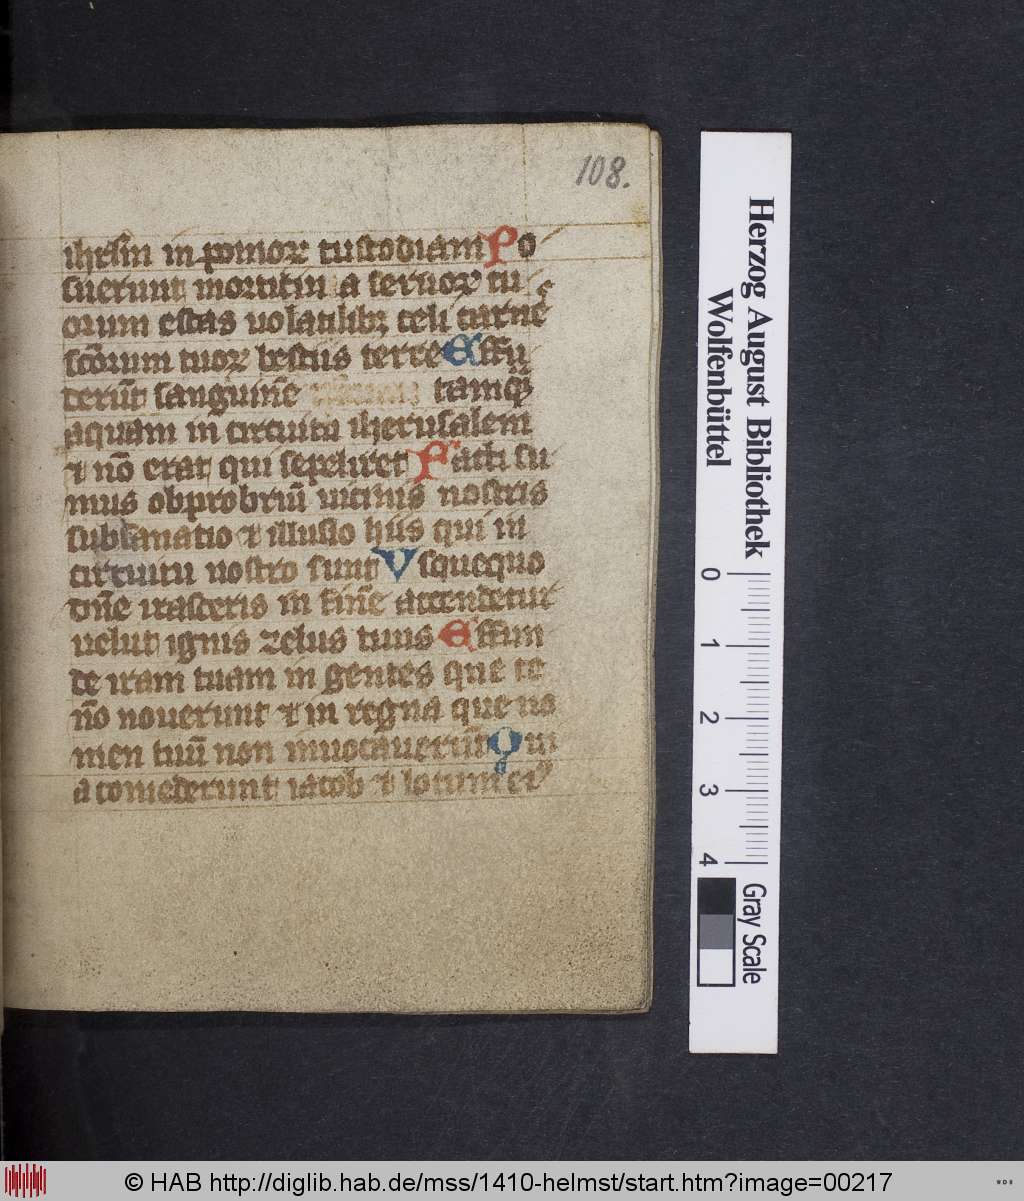 108.
ihrlm in pomorꝝ custodiam Po
suerunt morticin a seruorꝝ tu
orum escas uolatilibꝫ celi carnes
scōrum tuorꝝ bestiis terre Effu
derūt sanguinē tamqͣ
aquam in circuitu iherusalem
⁊ nō erat qui sepeliret Facti su
mus obprobriū uicinis nostris
subsanatio ⁊ illusio hiis qui in
circuitu nostro sunt Vsquequo
dn̄e irasceris in finē accendetur
uelut ignis zelus tuus Effun
de iram tuam in gentes que te
nō nouerunt ⁊ in regna que no
men tuū non inuocauerūt Qui
a comederunt iacob ⁊ locum eiꝰ
Herzog August Bibliothek
Wolfenbüttel
0 1 2 3 4
Gray Scale
© HAB http://diglib.hab.de/mss/1410-helmst/start.htm?image=00217